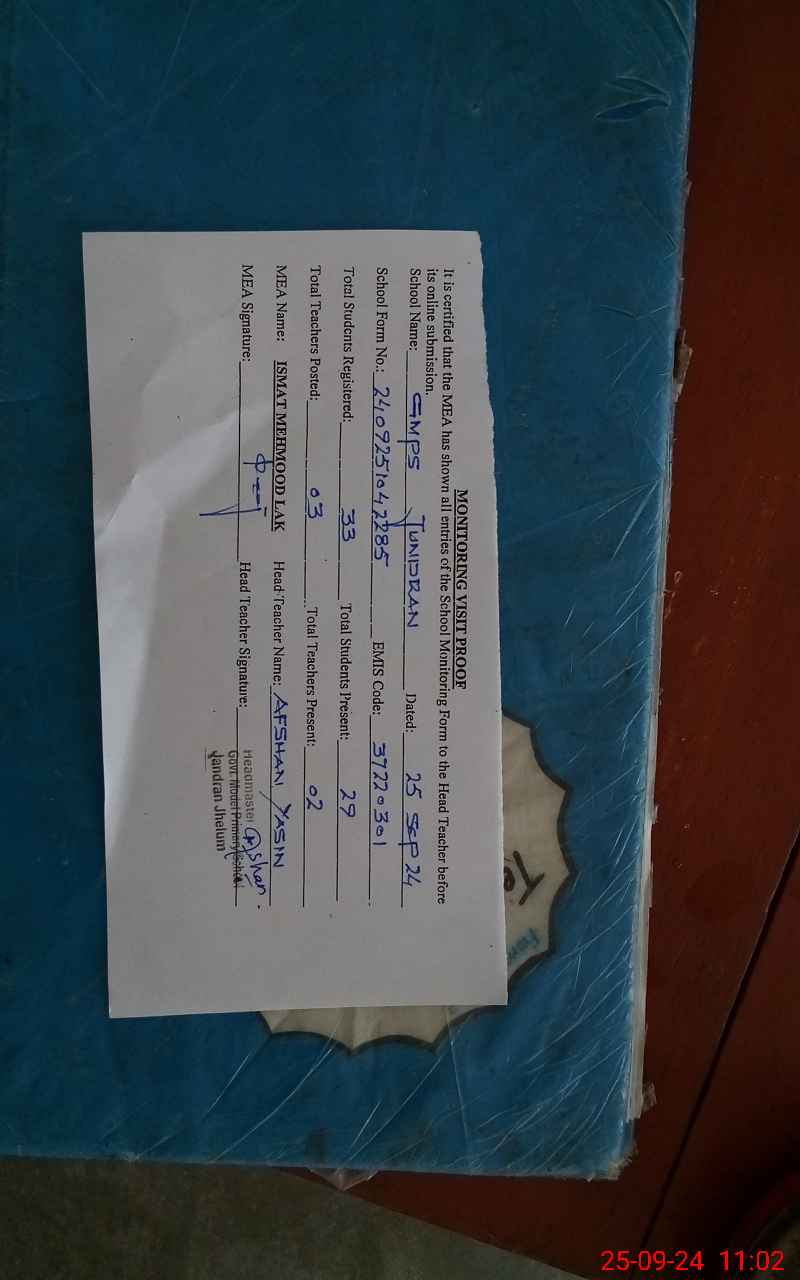 MONITORING VISIT PROOF
It is certified that the MEA has shown all entries of the School Monitoring Form to the Head Teacher before
its online submission.
School Name: GMPS JUNDRAN Dated: 25 Sep 24
School Form No.: 2409251042285 EMIS Code: 37220301
Total Students Registered: 33 Total Students Present: 29
Total Teachers Posted: 03 Total Teachers Present: 02
MEA Name: ISMAT MEHMOOD LAK Head Teacher Name: AFSHAN YASIN
MEA Signature: Head Teacher Signature:
Headmaster
Govt. Model Primary School
Jandran Jhelum
25-09-24 11:02